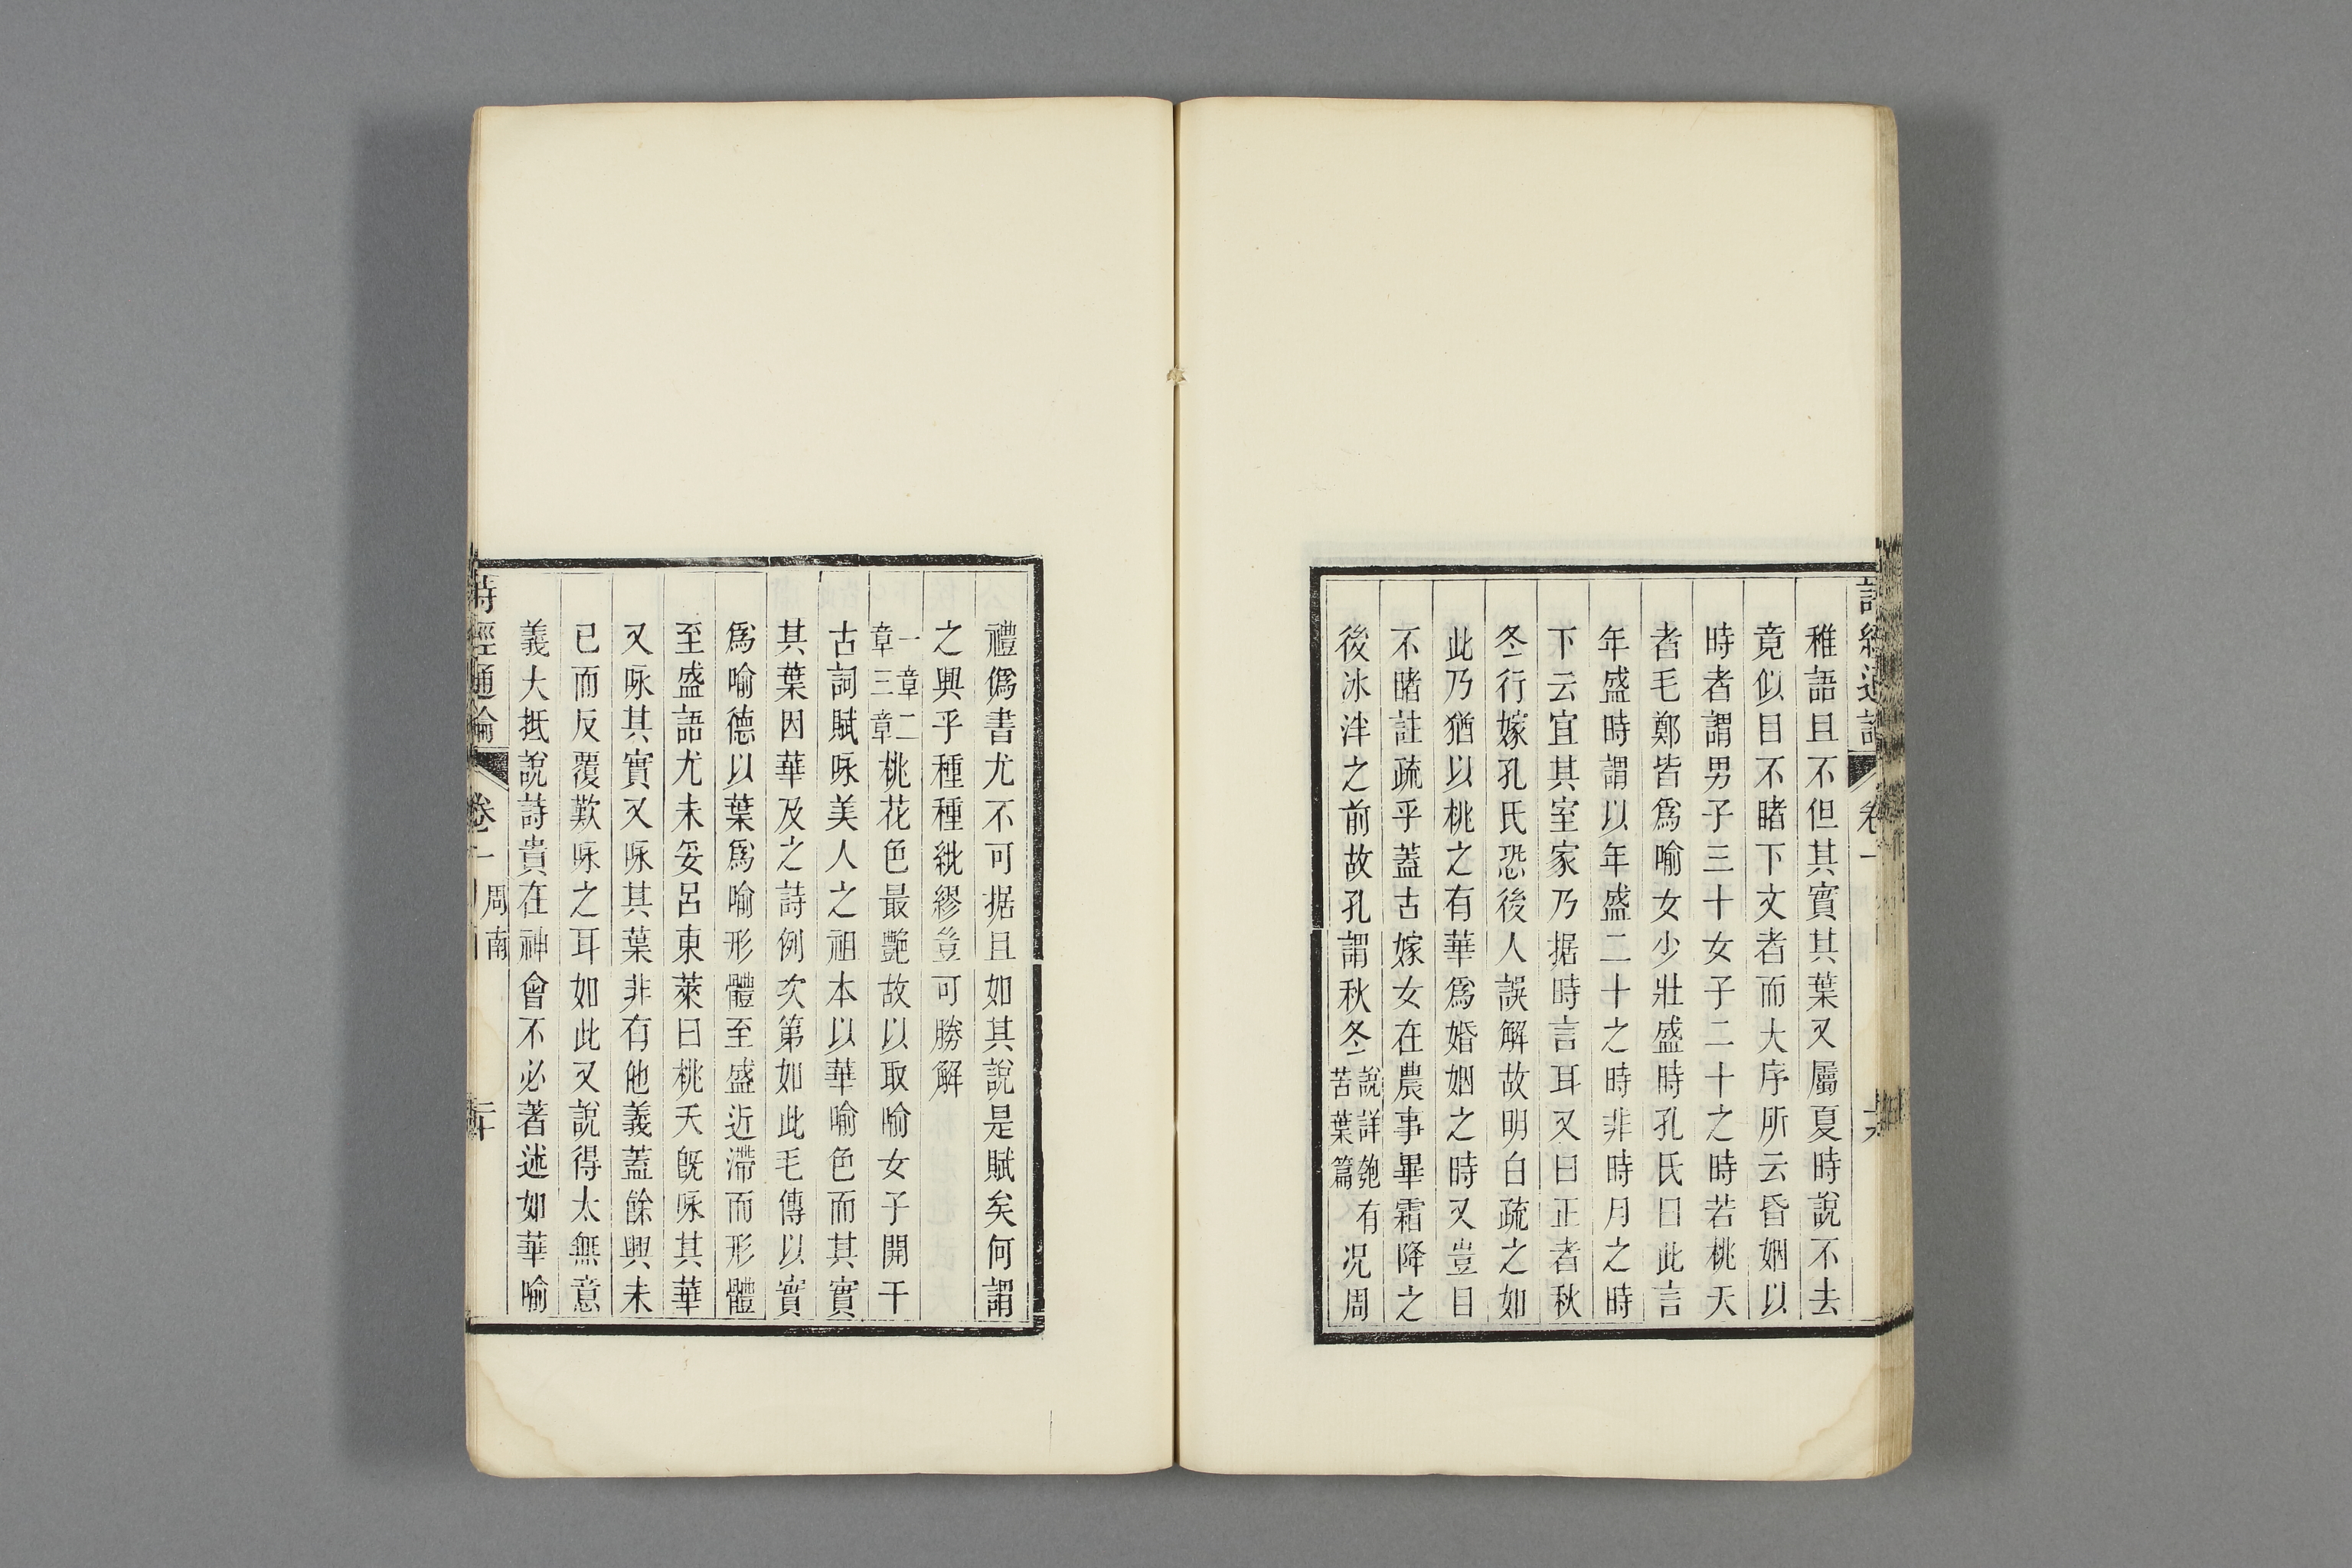 詩經通論
卷一
稚語且不但其實其葉又屬夏時說不去
竟似目不睹下文者而大序所云昏姻以
時者謂男子三十女子二十之時若桃夭
者毛鄭皆爲喻女少壯盛時孔氏曰此言
年盛時謂以年盛二十之時非時月之時
下云宜其室家乃据時言耳又曰正者秋
冬行嫁孔氏恐後人誤解故明白疏之如
此乃猶以桃之有華爲婚姻之時又豈目
不睹註疏乎蓋古嫁女在農事畢霜降之
後冰泮之前故孔謂秋冬
說詳匏有
苦葉篇
况周
禮僞書尤不可据且如其說是賦矣何謂
之興乎種種紕繆豈可勝解
一章二
章三章
桃花色最艷故以取喻女子開千
古詞賦咏美人之祖本以華喻色而其實
其葉因華及之詩例次第如此毛傳以實
爲喻德以葉爲喻形體至盛近滯而形體
至盛語尤未妥呂東萊曰桃夭旣咏其華
又咏其實又咏其葉非有他義蓋餘興未
已而反覆歎咏之耳如此又說得太無意
義大抵說詩貴在神會不必著述如華喻
詩經通論
卷一
周南
二十